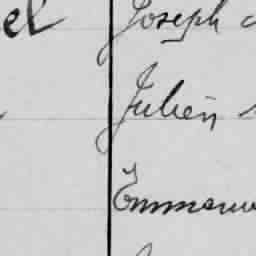 el Joseph
Julien
Emmanu